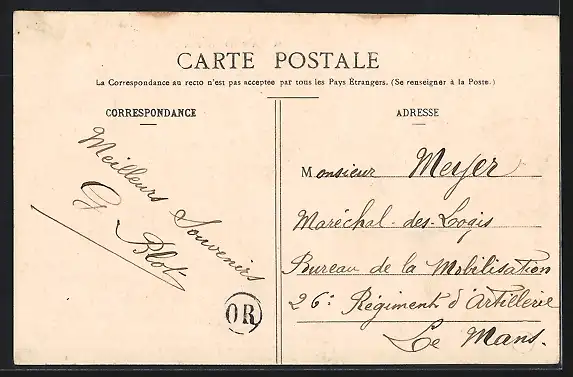 CARTE POSTALE
La Correspondance au recto n'est pas acceptée par tous les Pays Étrangers. (Se renseigner à la Poste.)
CORRESPONDANCE
Meilleurs Souvenirs
G Blot
OR
ADRESSE
Monsieur Meyer
Maréchal-des-Logis
Bureau de la Mobilisation
26e Régiment d'Artillerie
Le Mans.